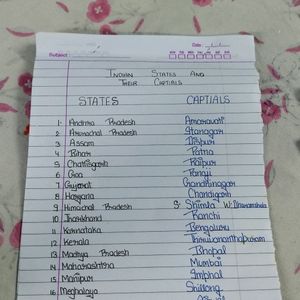 Date
Subject
INDIAN STATES AND
THEIR CAPTIALS
STATES CAPTIALS
1. Andhra Pradesh Amaravati
2 Arunachal Pradesh Itanagar
3 Assam Dispur
4 Bihar Patna
5 Chattisgarh Raipur
6 Goa Panaji
7 Gujarat Gandhinagar
8 Haryana Chandigarh
9 Himachal Pradesh S: Shimla W: Dharamshala
10 Jharkhand Ranchi
11 Karnataka Bengaluru
12 Kerala Thiruvananthapuram
13 Madhya Pradesh Bhopal
14 Maharashtra Mumbai
15 Manipur Imphal
16 Meghalaya Shillong